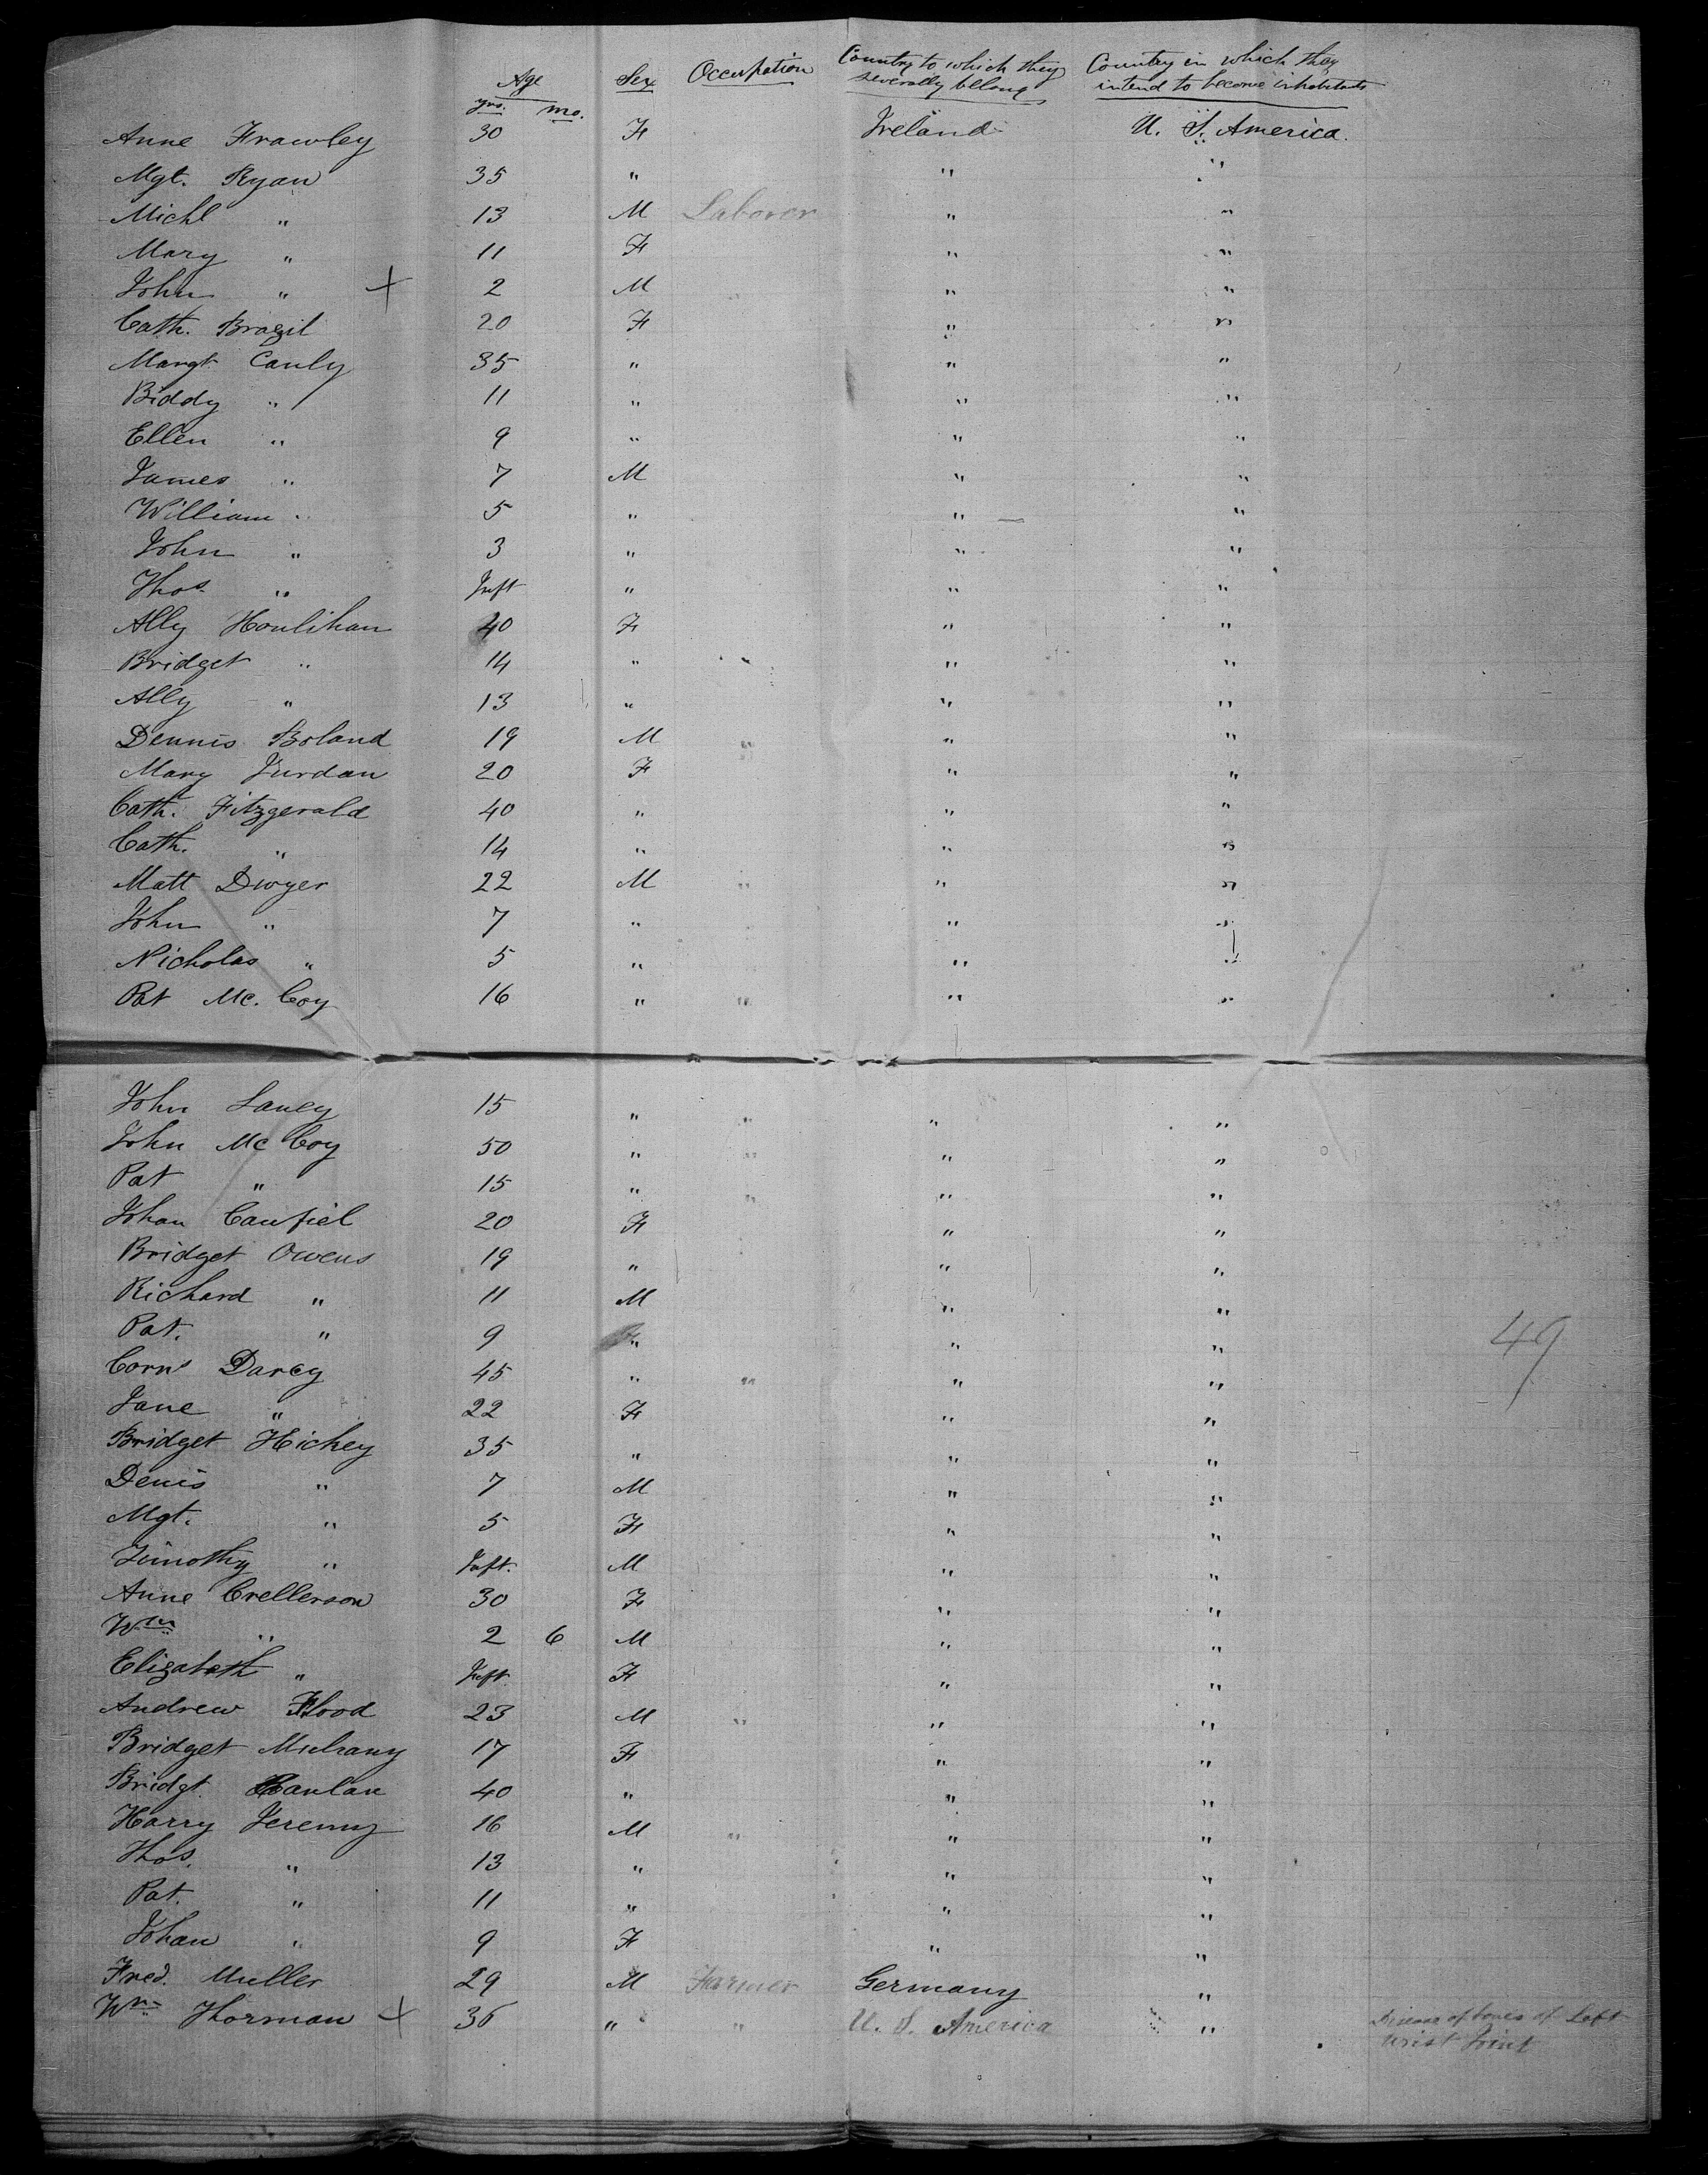 Age Sex Occupation Country to which they severally belong Country in which they intend to become inhabitants
yrs. mo.
Anne Frawley 30 F Ireland U. S. America.
Mgt. Ryan 35 " " "
Michl " 13 M Laborer " "
Mary " 11 F " "
John " + 2 M " "
Cath. Brazil 20 F " "
Margt Canly 35 " " "
Biddy " 11 " " "
Ellen " 9 " " "
James " 7 M " "
William " 5 " " "
John " 3 " " "
Thos " Inft " " "
Ally Houlihan 40 F " "
Bridget " 14 " " "
Ally " 13 " " "
Dennis Boland 19 M " " "
Mary Jurdan 20 F " "
Cath. Fitzgerald 40 " " "
Cath. " 14 " " "
Matt Dwyer 22 M " " "
John " 7 " " "
Nicholas " 5 " " "
Pat Mc. Coy 16 " " " "
John Laney 15 " " " "
John Mc Coy 50 " " " "
Pat " 15 " " " "
Johan Canfiel 20 F " "
Bridget Owens 19 " " "
Richard " 11 M " "
Pat. " 9 " " " 49
Corns Darcy 45 " " " "
Jane " 22 F " "
Bridget Hickey 35 " " "
Denis " 7 M " "
Mgt. " 5 F " "
Timothy " Inft. M " "
Anne Crellerson 30 F " "
Wm " 2 6 M " "
Elizabeth " Inft. F " "
Andrew Flood 23 M " " "
Bridget Mulrany 17 F " "
Bridgt. 40 " " "
Harry Jeremy 16 M " " "
Thos. " 13 " " "
Pat. " 11 " " "
Johan " 9 F " "
Fred. Muller 29 M Farmer Germany "
Wm Thorman + 36 " " U. S. America " Disease of bones of Left
Wrist Joint